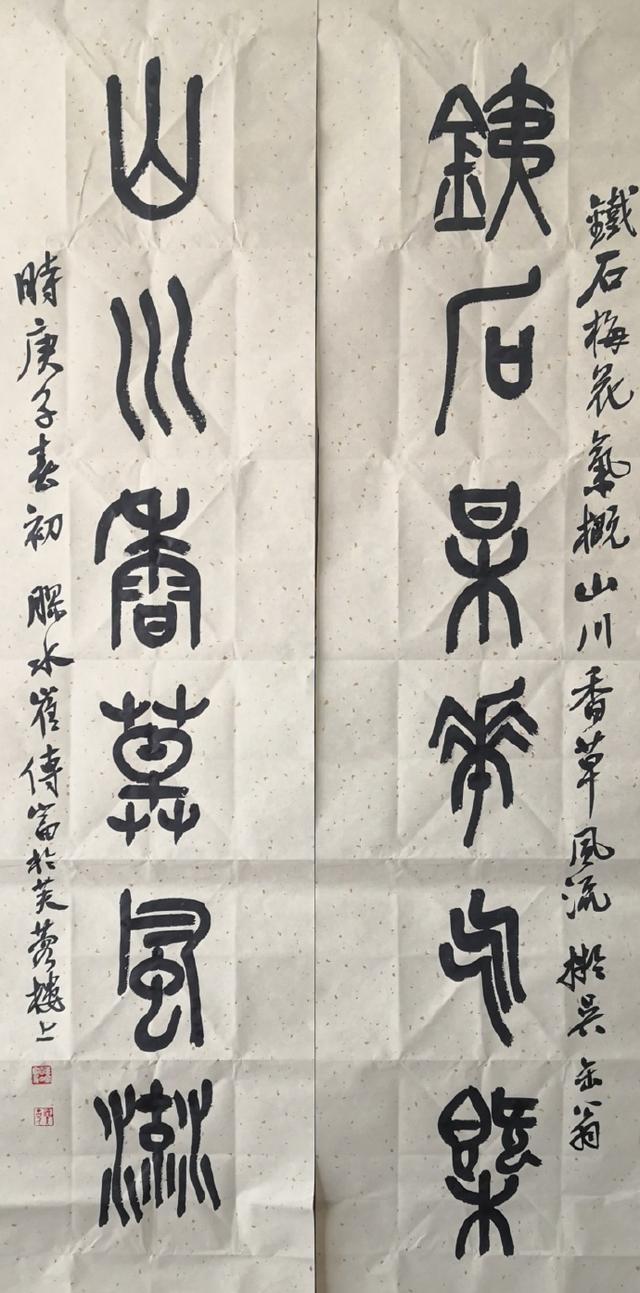 鐵石梅花氣概山川香草風流 擬吳缶翁
銕石某華气槩
山川香草風流
時庚子春初 膠水崔傳富於芙蓉樓上